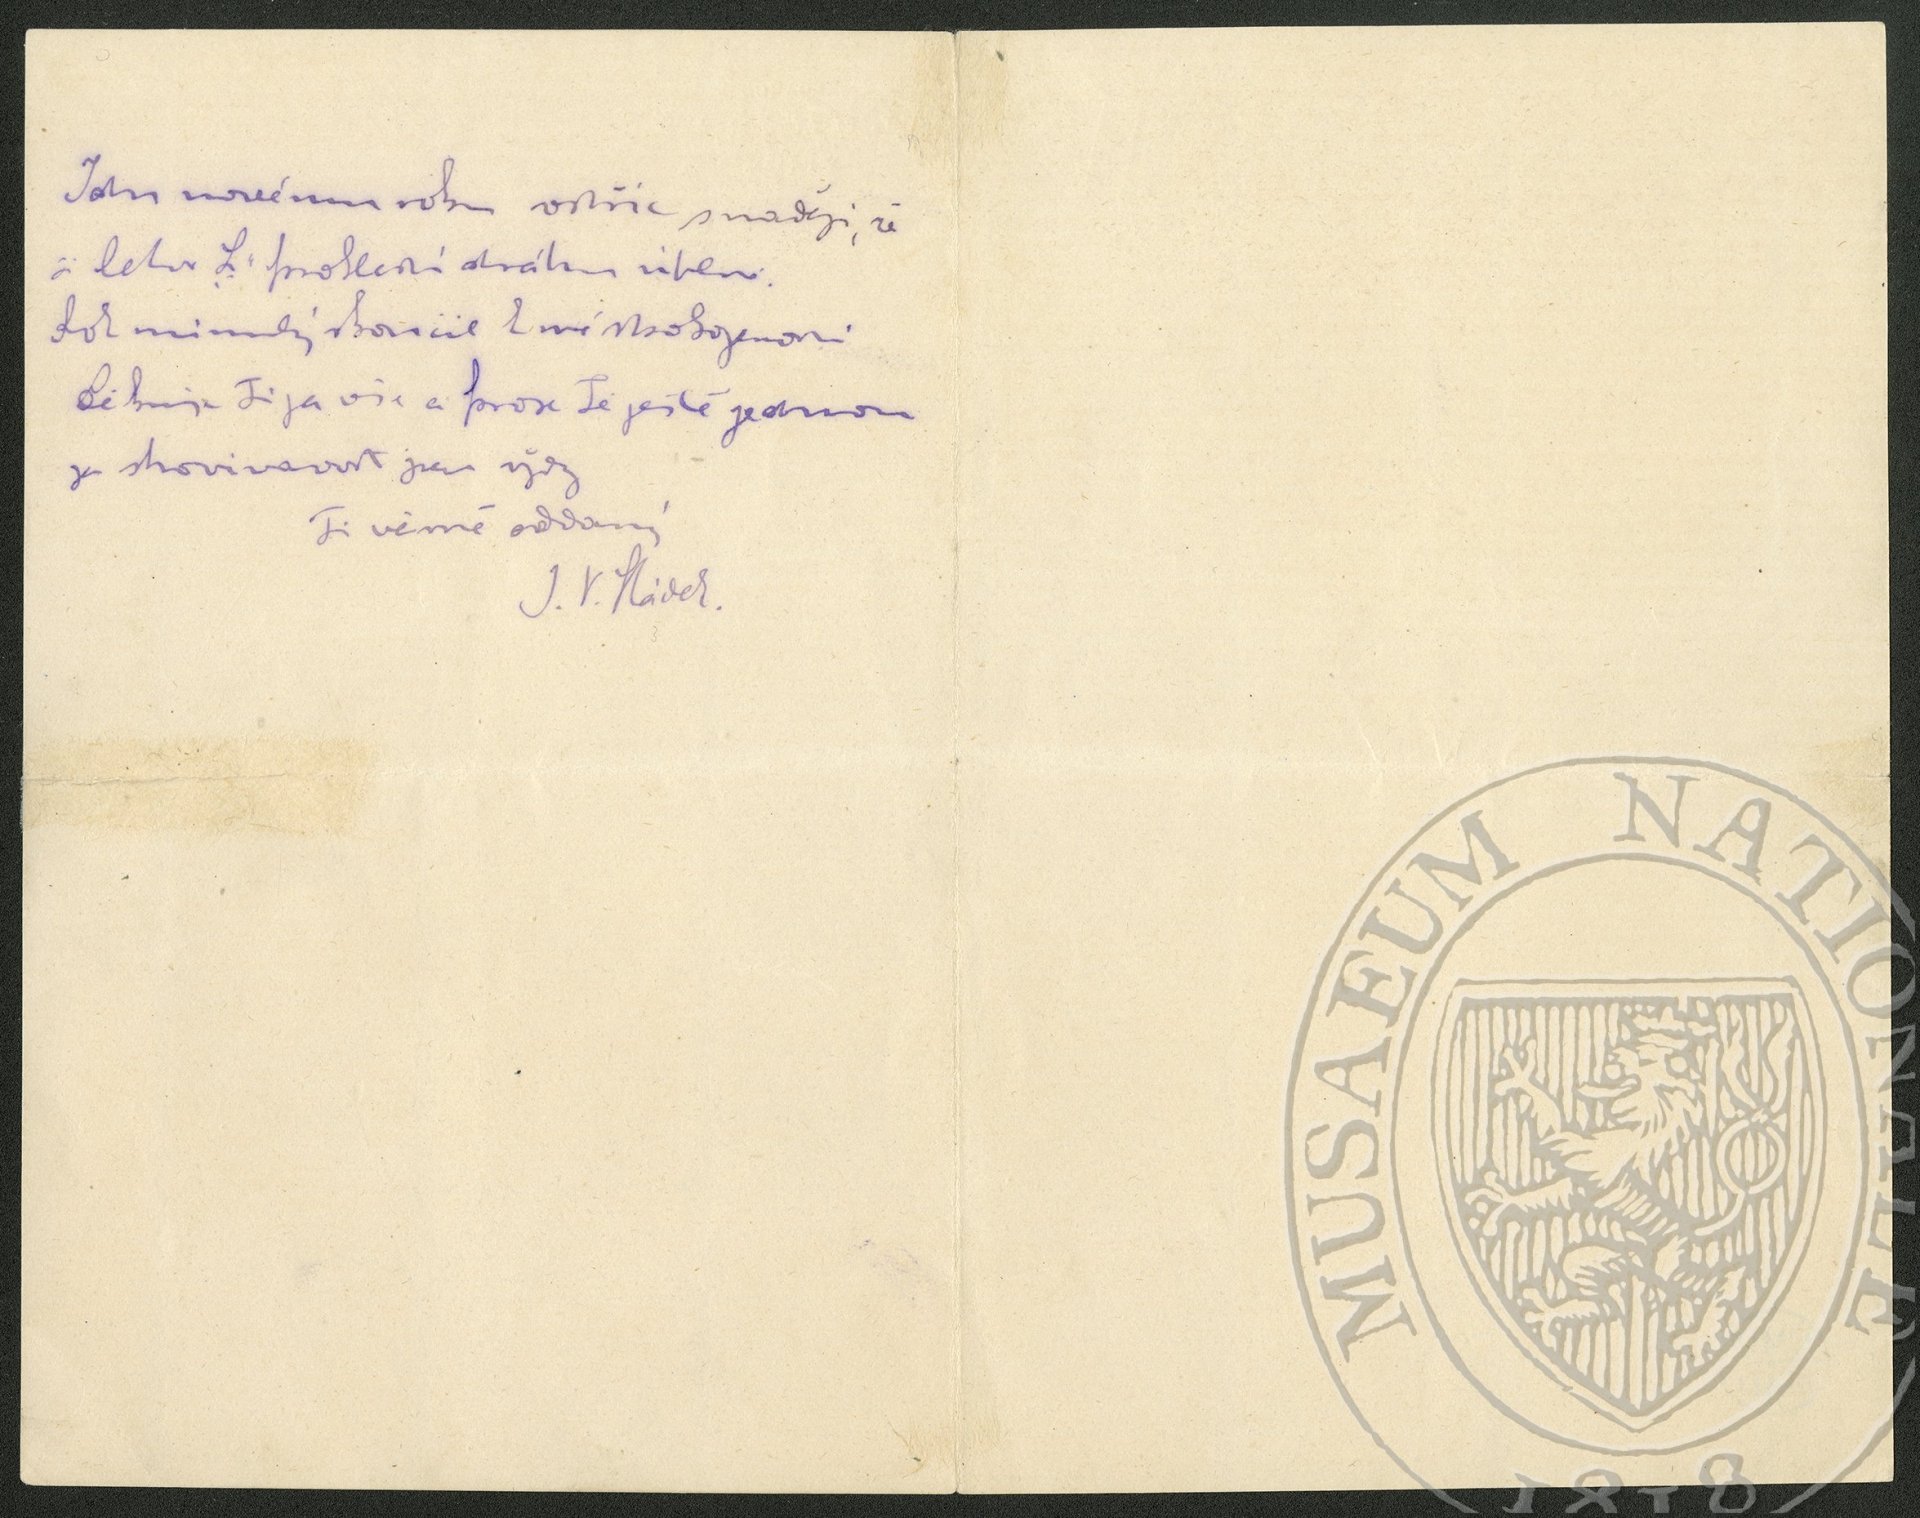 Jdu novému roku vstříc s nadějí, že
si letos „L.“ proklestí dráhu úplně.
Rok minulý skončil k mé spokojenosti
Děkuju Ti za vše a prose Tě ještě jednou
za shovívavost jsem vždy
Ti věrně oddaný
J. V. Sládek.
MUSAEUM NATIONALE
1818